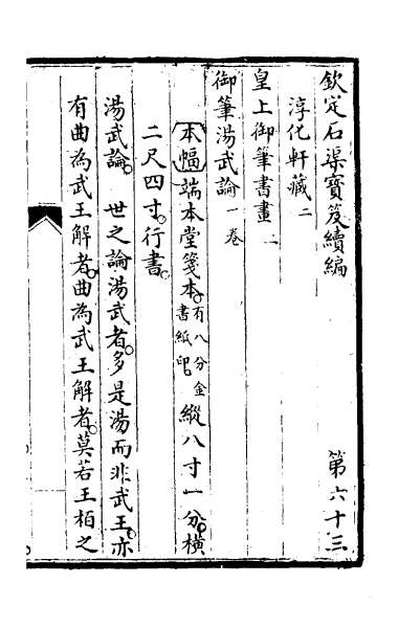 欽定石渠寶笈續編　第六十三
淳化軒藏二
皇上御筆書畫二
御筆湯武論一卷
本幅端本堂箋本。有八分金書紙印。縱八寸一分。橫
二尺四寸。行書。
湯武論。　世之論湯武者。多是湯而非武王。亦
有曲為武王解者。曲為武王解者。莫若王柏之